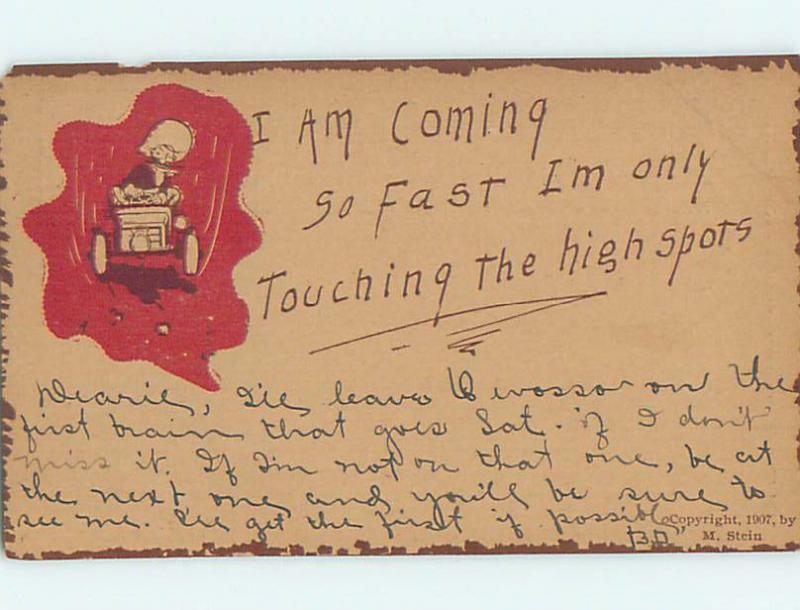 I Am Coming
So Fast Im only
Touching the high spots
Dearie, I'll leave Owosso on the
first train that goes Sat. if I don't
miss it. If I'm not on that one, be at
the next one, and you'll be sure to
see me. I'll get the first if possible
Copyright, 1907, by
M. Stein